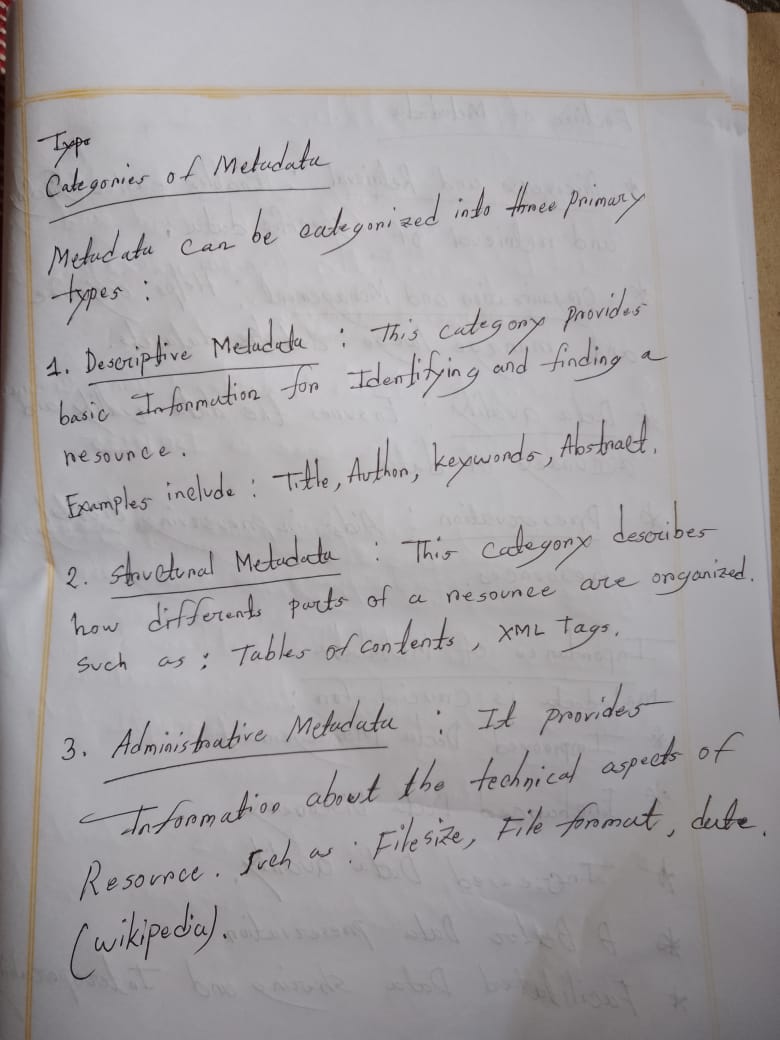 Type
Categories of Metadata
Metadata can be categorized into three primary
types :
1. Descriptive Metadata : This category provides
basic Information for Identifying and finding a
resource.
Examples include : Title, Author, keywords, Abstract.
2. Structural Metadata : This category describes
how differents parts of a resource are organized.
Such as : Tables of contents, XML Tags.
3. Administrative Metadata : It provides
Information about the technical aspects of
Resource. Such as : File size, File format, date.
(wikipedia).